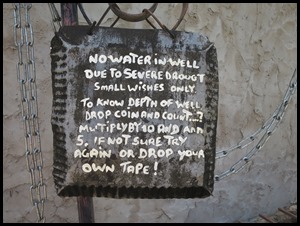 NO WATER IN WELL
DUE TO SEVERE DROUGT
SMALL WISHES ONLY
TO KNOW DEPTH OF WELL
DROP COIN AND COUNT...?
MUTIPLY BY 10 AND ADD
5. IF NOT SURE TRY
AGAIN OR DROP YOUR
OWN TAPE!